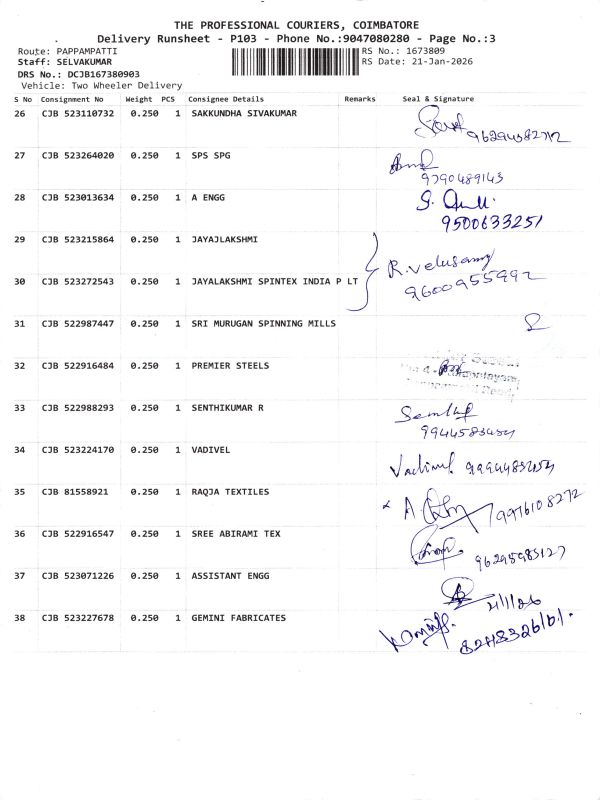 THE PROFESSIONAL COURIERS, COIMBATORE
Delivery Runsheet - P103 - Phone No.:9047080280 - Page No.:3
Route: PAPPAMPATTI
RS No.: 1673809
Staff: SELVAKUMAR
RS Date: 21-Jan-2026
DRS No.: DCJB167380903
Vehicle: Two Wheeler Delivery
S No Consignment No Weight PCS Consignee Details Remarks Seal & Signature
26 CJB 523110732 0.250 1 SAKKUNDHA SIVAKUMAR
27 CJB 523264020 0.250 1 SPS SPG
9790489143
28 CJB 523013634 0.250 1 A ENGG
9500633251
29 CJB 523215864 0.250 1 JAYAJLAKSHMI
R. Velusamy
30 CJB 523272543 0.250 1 JAYALAKSHMI SPINTEX INDIA P LT
9600955992
31 CJB 522987447 0.250 1 SRI MURUGAN SPINNING MILLS
32 CJB 522916484 0.250 1 PREMIER STEELS
33 CJB 522988293 0.250 1 SENTHIKUMAR R
34 CJB 523224170 0.250 1 VADIVEL
35 CJB 81558921 0.250 1 RAQJA TEXTILES
9976108272
36 CJB 522916547 0.250 1 SREE ABIRAMI TEX
96295985127
37 CJB 523071226 0.250 1 ASSISTANT ENGG
21/1/26
38 CJB 523227678 0.250 1 GEMINI FABRICATES